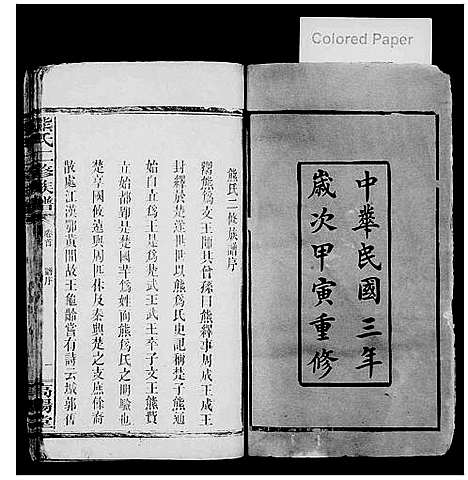 Colored Paper
中華民國三年
歲次甲寅重修
熊氏二修族譜序
鬻熊爲文王師其曾孫曰熊繹事周成王成王
封繹於楚後世以熊爲氏史記稱楚子熊通
始自立爲王是爲武王武王卒子文王熊貲
立始都郢是楚國羋爲姓而熊爲氏之明驗也
楚享國攸遠與周匹休及秦興楚之支庶餘裔
散處江漢鄂黃間故王龜齡嘗有詩云城郭舊
熊氏二修族譜
卷首
譜序
一
高陽堂